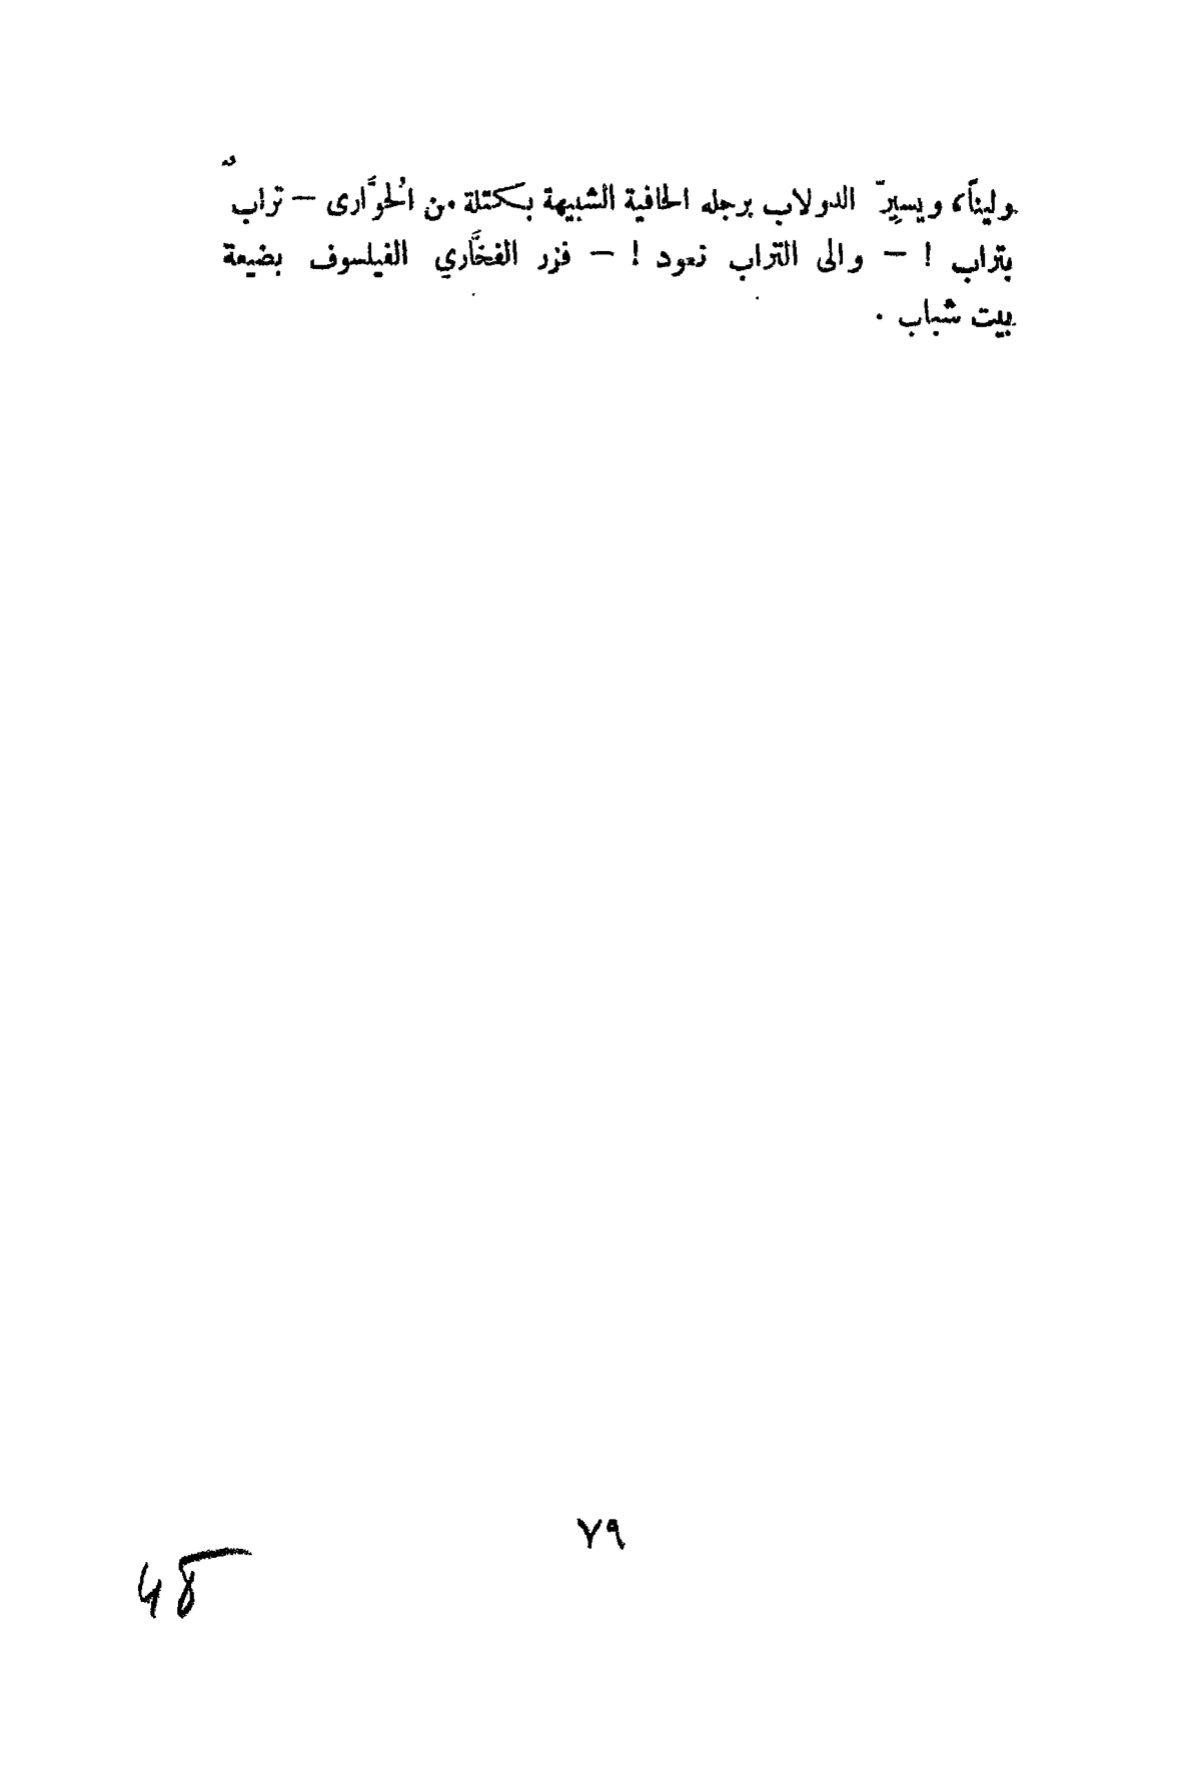 وليناً، ويسيِرّ الدولاب برجله الحافية الشبيهة بكتلة من الحُوَّارى — ترابٌ
بتراب ! — والى التراب نعود ! — فزر الفخَّاري الفيلسوف بضيعة
بيت شباب .
٧٩
48